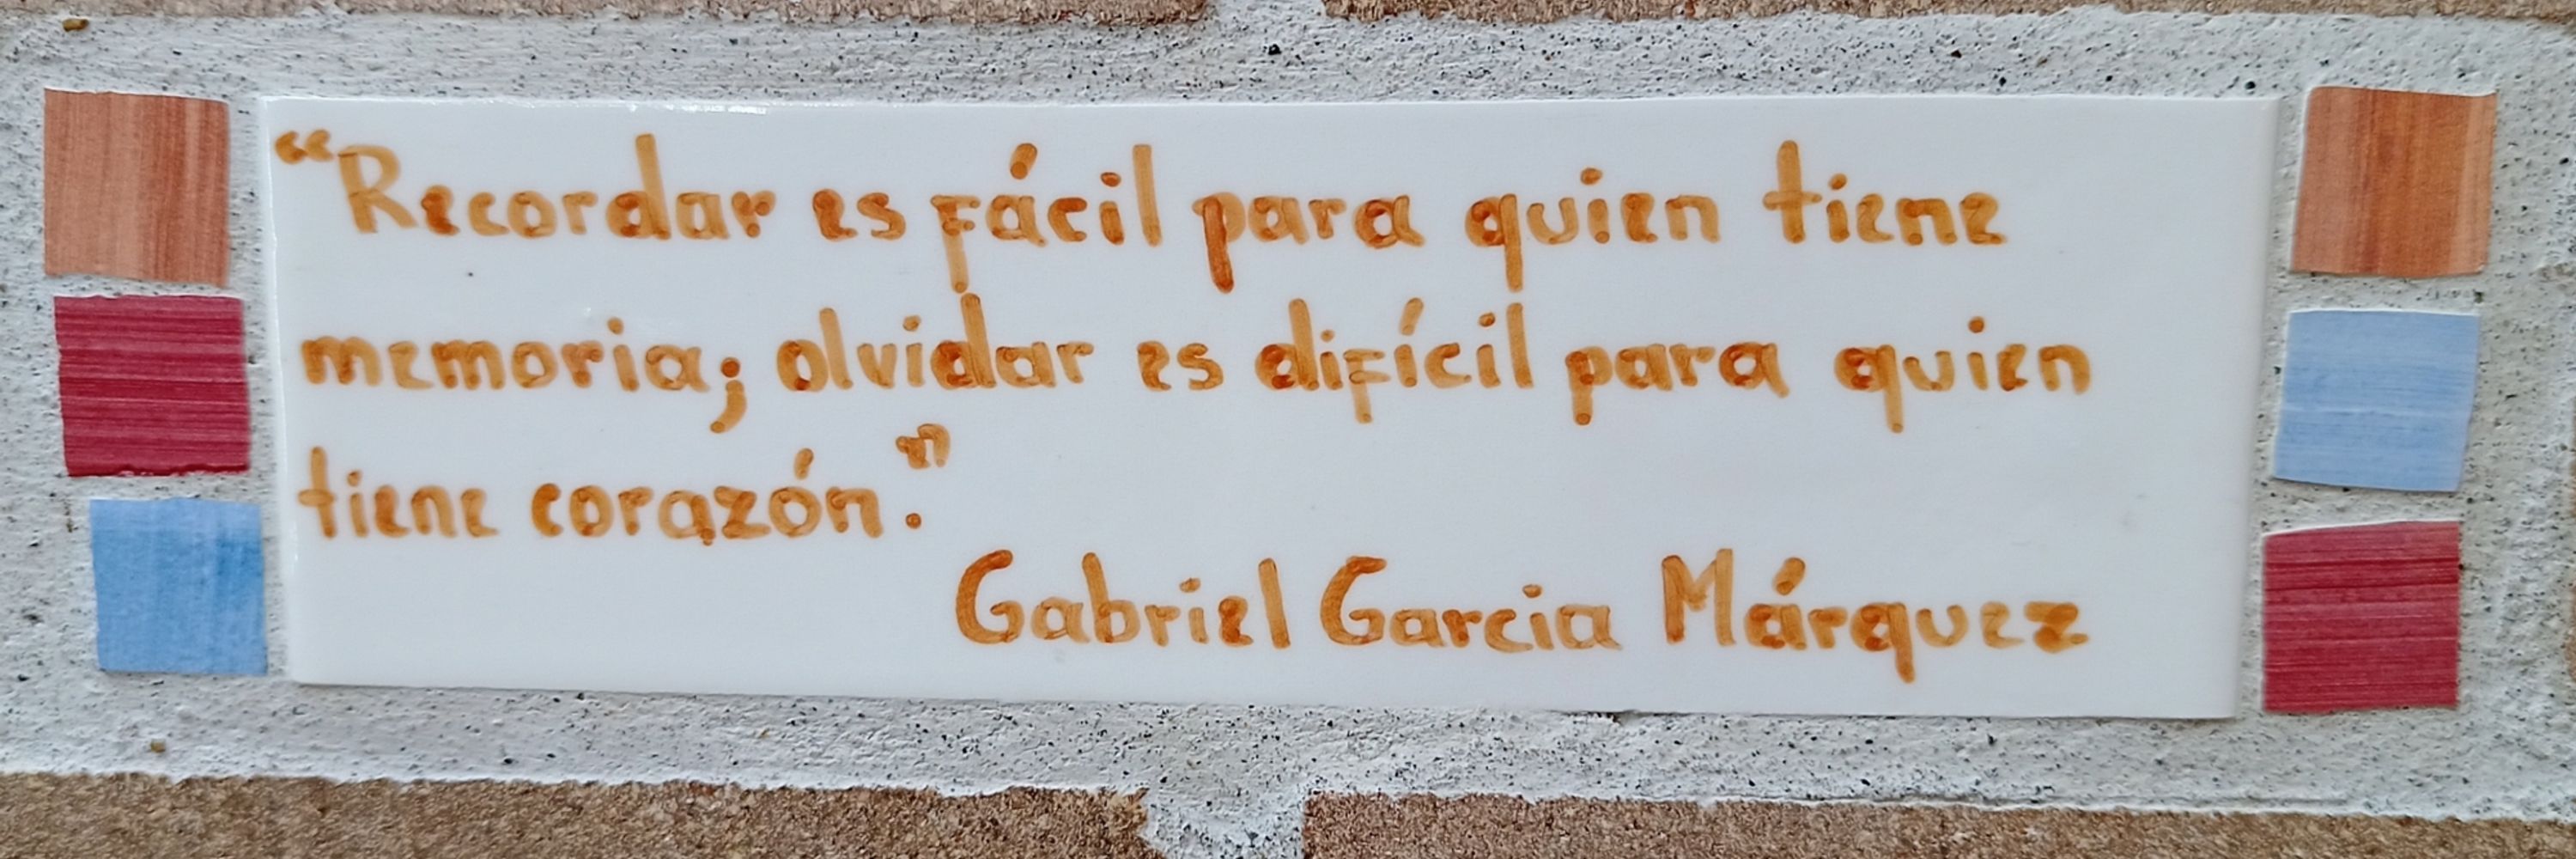 “Recordar es fácil para quien tiene
memoria; olvidar es difícil para quien
tiene corazón.”
Gabriel Garcia Márquez